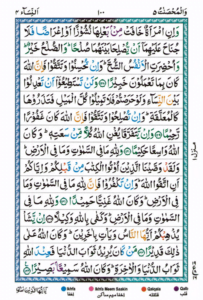 وَالْمُحْصَنٰتُ ٥ ١٠٠ اَلنِّسَآء ٤
وَاِنِ امْرَاَةٌ خَافَتْ مِنْۢ بَعْلِهَا نُشُوْزًا اَوْ اِعْرَاضًا فَلَا
جُنَاحَ عَلَيْهِمَاۤ اَنْ يُّصْلِحَا بَيْنَهُمَا صُلْحًا ؕ وَالصُّلْحُ خَيْرٌ ؕ
وَاُحْضِرَتِ الْاَنْفُسُ الشُّحَّ ؕ وَاِنْ تُحْسِنُوْا وَتَتَّقُوْا فَاِنَّ اللّٰهَ
كَانَ بِمَا تَعْمَلُوْنَ خَبِيْرًا وَلَنْ تَسْتَطِيْعُوْۤا اَنْ تَعْدِلُوْا
بَيْنَ النِّسَآءِ وَلَوْ حَرَصْتُمْ فَلَا تَمِيْلُوْا كُلَّ الْمَيْلِ فَتَذَرُوْهَا
كَالْمُعَلَّقَةِ ؕ وَاِنْ تُصْلِحُوْا وَتَتَّقُوْا فَاِنَّ اللّٰهَ كَانَ غَفُوْرًا
رَّحِيْمًا وَاِنْ يَّتَفَرَّقَا يُغْنِ اللّٰهُ كُلًّا مِّنْ سَعَتِهٖ ؕ وَكَانَ
اللّٰهُ وَاسِعًا حَكِيْمًا وَلِلّٰهِ مَا فِى السَّمٰوٰتِ وَمَا فِى الْاَرْضِ ؕ
وَلَقَدْ وَصَّيْنَا الَّذِيْنَ اُوْتُوا الْكِتٰبَ مِنْ قَبْلِكُمْ وَاِيَّاكُمْ اَنِ
اتَّقُوا اللّٰهَ ؕ وَاِنْ تَكْفُرُوْا فَاِنَّ لِلّٰهِ مَا فِى السَّمٰوٰتِ وَمَا
فِى الْاَرْضِ ؕ وَكَانَ اللّٰهُ غَنِيًّا حَمِيْدًا وَلِلّٰهِ مَا فِى السَّمٰوٰتِ
وَمَا فِى الْاَرْضِ ؕ وَكَفٰى بِاللّٰهِ وَكِيْلًا اِنْ يَّشَاْ
يُذْهِبْكُمْ اَيُّهَا النَّاسُ وَيَاْتِ بِاٰخَرِيْنَ ؕ وَكَانَ اللّٰهُ عَلٰى ذٰلِكَ
قَدِيْرًا مَنْ كَانَ يُرِيْدُ ثَوَابَ الدُّنْيَا فَعِنْدَ اللّٰهِ
ثَوَابُ الدُّنْيَا وَالْاٰخِرَةِ ؕ وَكَانَ اللّٰهُ سَمِيْعًۢا بَصِيْرًا